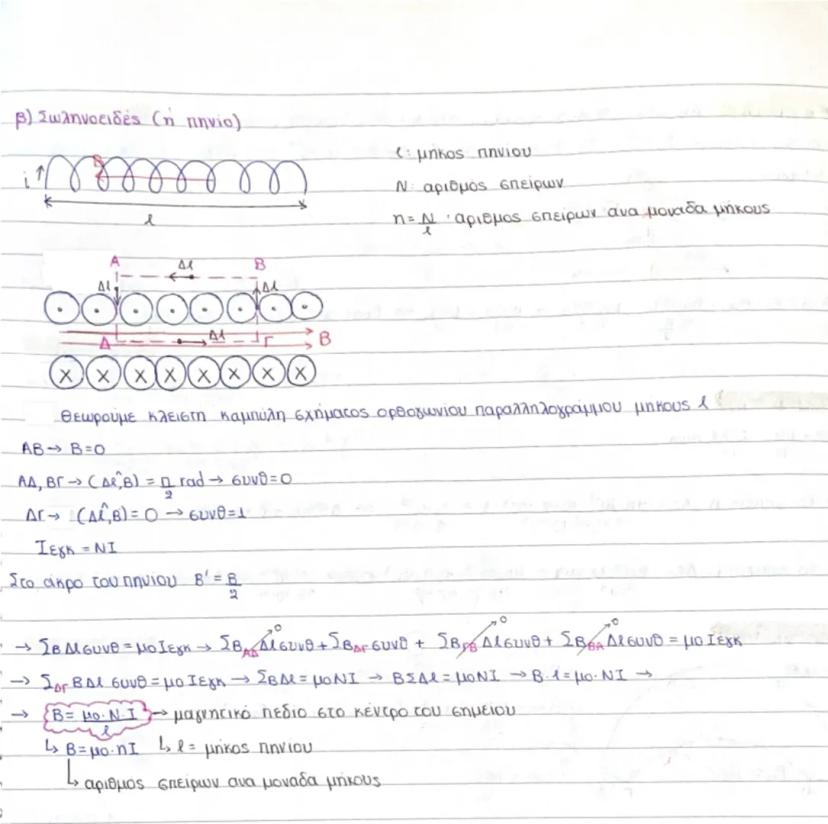 β) Σωληνοειδές (ή πηνίο)
ℓ: μήκος πηνίου
i
N: αριθμος σπείρων
ℓ
n = N/ℓ : αριθμος σπείρων ανα μοναδα μήκους
A Δℓ B
Δℓ Δℓ
Δ Δℓ Γ B
x x x x x x x x
Θεωρούμε κλειστη καμπύλη σχήματος ορθογωνίου παραλληλογράμμου μήκους ℓ
AB → B=0
ΑΔ, ΒΓ → (Δℓ,^B) = π/2 rad → συνθ=0
ΔΓ → (Δℓ,^B) = 0 → συνθ=1
Iεγκ = NI
Στο άκρο του πηνίου B' = B/2
→ ΣBΔℓσυνθ = μο Iεγκ → ΣB_ΑΔ Δℓσυνθ + ΣB_ΔΓ συνθ + ΣB_ΓΒ Δℓσυνθ + ΣB_ΒΑ Δℓσυνθ = μο Iεγκ
0 0 0
→ Σ_ΔΓ BΔℓ συνθ = μο Iεγκ → ΣBΔℓ = μο NI → BΣΔℓ = μο NI → B·ℓ = μο·NI →
→ B = μο·N·I/ℓ → μαγνητικό πεδιο στο κέντρο του σημείου
↳ B = μο·nI ↳ ℓ = μήκος πηνίου
↳ αριθμος σπείρων ανα μοναδα μήκους